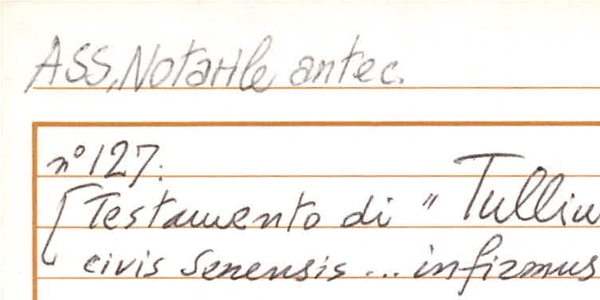 ASS, Notarile antec.
n° 127.
[Testamento di "Tulliu
civis Senensis ... infirmus